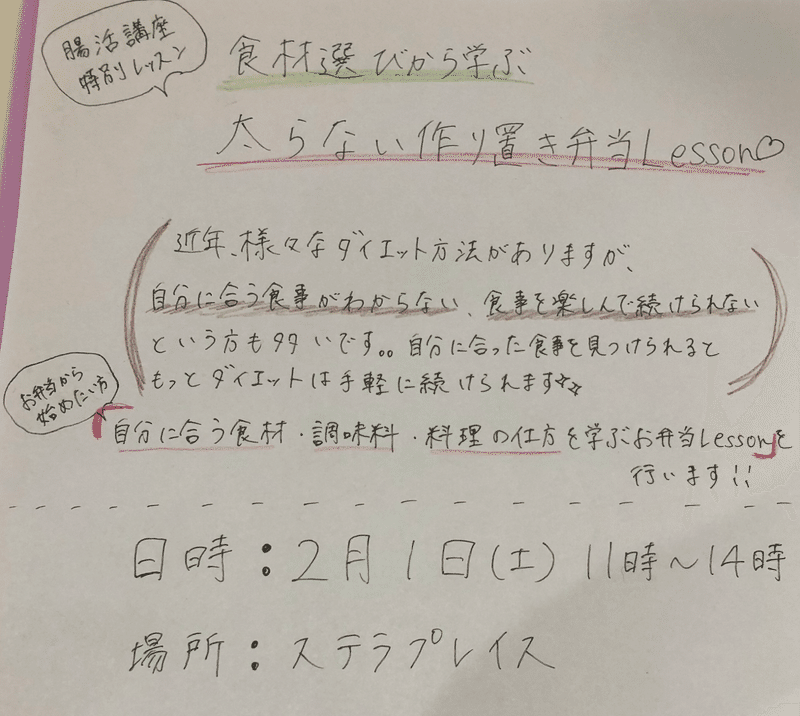 腸活講座
特別レッスン
食材選びから学ぶ
太らない作り置き弁当Lesson♡
近年、様々なダイエット方法がありますが、
自分に合う食事がわからない、食事を楽しんで続けられない
という方も多いです。。自分に合った食事を見つけられると
もっとダイエットは手軽に続けられます☆☆
お弁当から
始めたい方
「自分に合う食材・調味料・料理の仕方を学ぶお弁当Lesson」を
行います!!
日時:2月1日(土) 11時~14時
場所:ステラプレイス